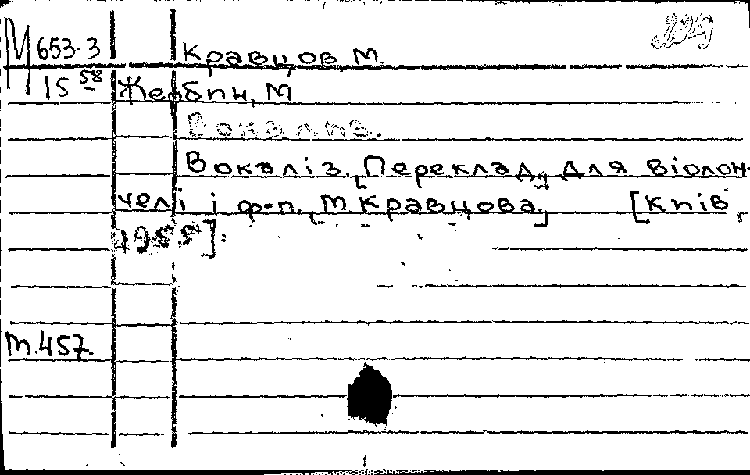 М 653-3 Кравцов, М.
15 58 Жербін, М
Вокаліз.
Вокаліз. [Переклад] для віолон-
челі і ф-п. [М. Кравцова.] [Київ,
1955].
М.457.